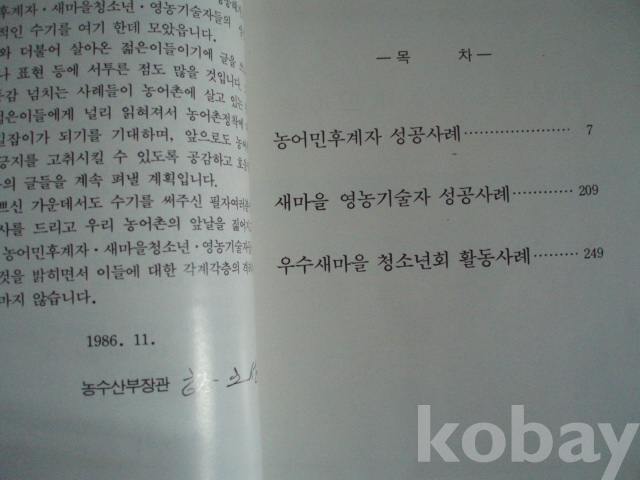 후계자·새마을청소년·영농기술자들의
적인 수기를 여기 한데 모았읍니다.
와 더불어 살아온 젊은이들이기에 글을
나 표현 등에 서투른 점도 많을 것입니다.
감 넘치는 사례들이 농어촌에 살고 있는
젊은이들에게 널리 읽혀져서 농어촌정착에
길잡이가 되기를 기대하며, 앞으로도
긍지를 고취시킬 수 있도록 공감하고
의 글들을 계속 펴낼 계획입니다.
쁘신 가운데서도 수기를 써주신 필자여러분
사를 드리고 우리 농어촌의 앞날을 짊어지
농어민후계자·새마을청소년·영농기술자
것을 밝히면서 이들에 대한 각계각층의
마지 않습니다.
1986. 11.
농수산부장관
— 목 차 —
농어민후계자 성공사례 ………………… 7
새마을 영농기술자 성공사례 ………… 209
우수새마을 청소년회 활동사례 ……… 249
kobay